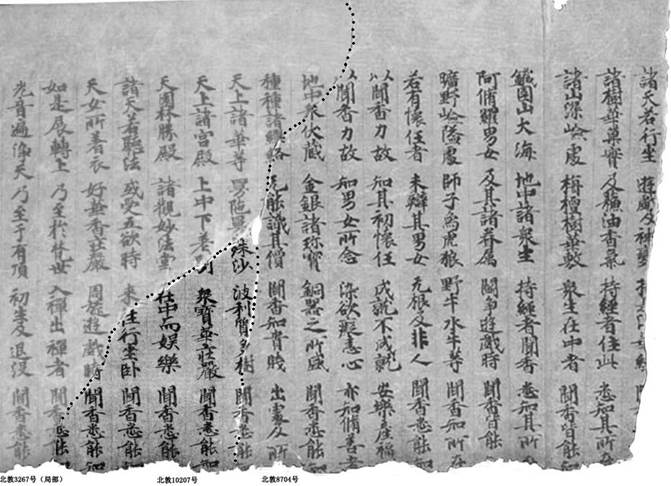 諸天若行坐 遊戲及神變
諸樹華菓實 及穌油香氣 持經者住此 悉知其所在
諸山深嶮處 栴檀樹華敷 衆生在中者 聞香皆能知
鐵圍山大海 地中諸衆生 持經者聞香 悉知其所在
阿脩羅男女 及其諸眷属 鬪諍遊戲時 聞香皆能
曠野嶮隘處 師子象虎狼 野牛水牛等 聞香知所在
若有懷任者 未辯其男女 无根及非人 聞香悉能知
以聞香力故 知其初懷任 成就不成就 安樂產福
以聞香力故 知男女所念 染欲癡恚心 亦知脩善者
地中衆伏藏 金銀諸珎寶 銅器之所盛 聞香悉能知
種種諸瓔珞 无能識其價 聞香知貴賤 出處及所
天上諸華等 曼陁曼殊沙 波利質多樹 聞香悉能知
天上諸宮殿 上中下差別 衆寶華莊嚴 聞香悉能知
天園林勝殿 諸觀妙法堂 在中而娛樂 聞香悉能知
諸天若聽法 或受五欲時 來往行坐臥 聞香悉能知
天女所著衣 好華香莊嚴 周旋遊戲時 聞香悉能知
如是展轉上 乃至於梵世 入禪出禪者 聞香悉能知
光音遍淨天 乃至于有頂 初生及退沒 聞香悉能知
北敦3267号（局部）
北敦10207号
北敦8704号